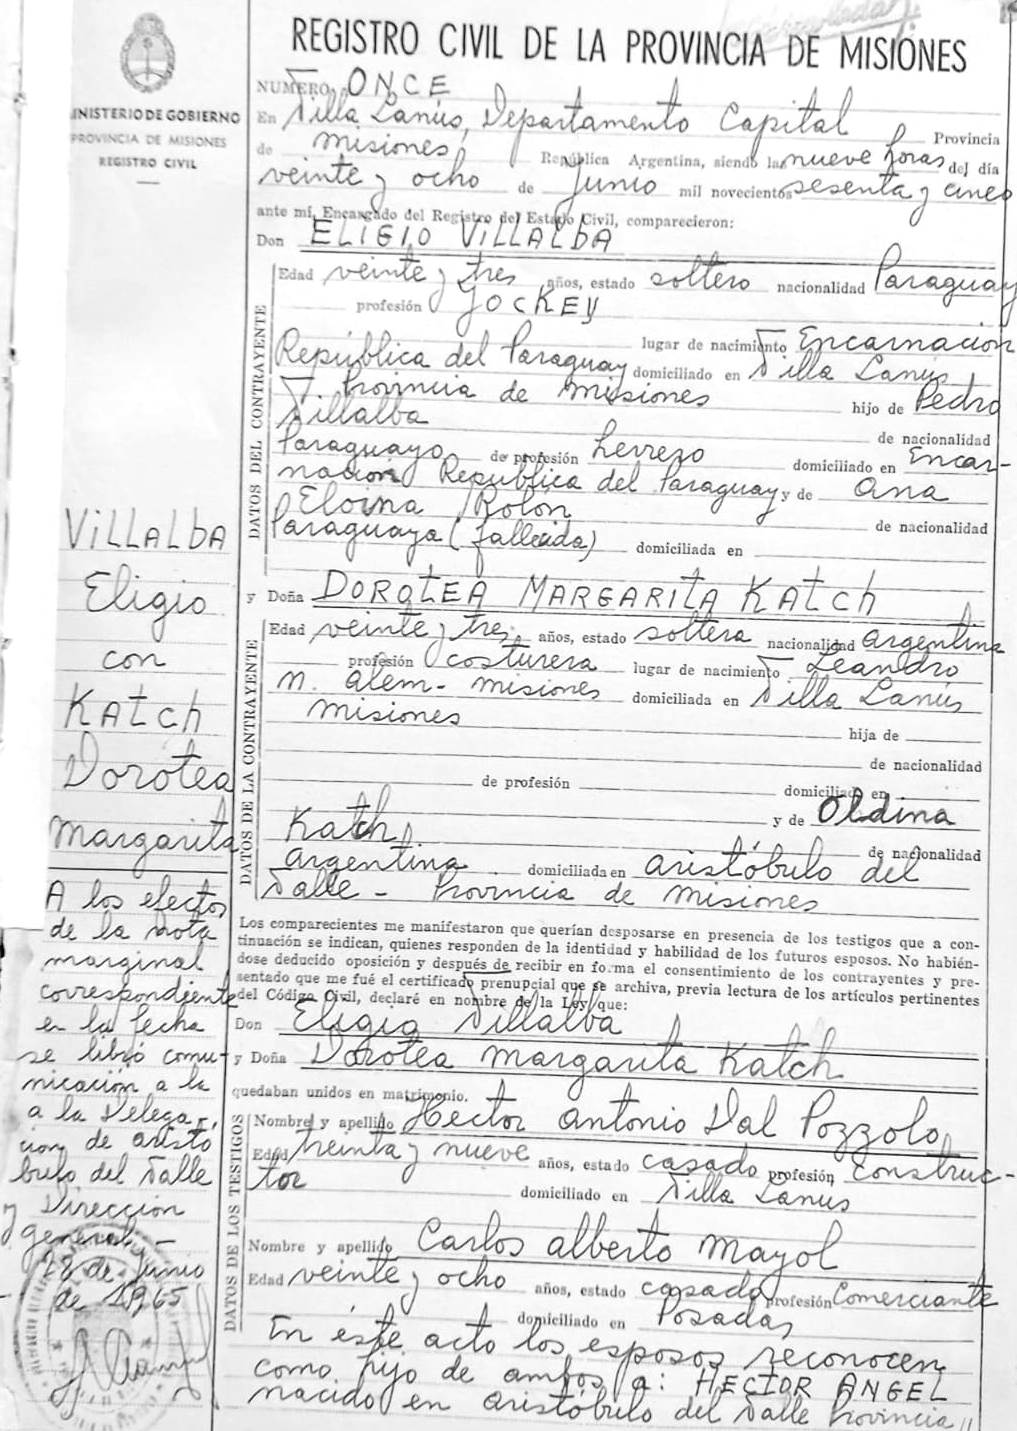 REGISTRO CIVIL DE LA PROVINCIA DE MISIONES
MINISTERIO DE GOBIERNO
PROVINCIA DE MISIONES
REGISTRO CIVIL
NUMERO ONCE
En Villa Lanús, Departamento Capital Provincia
de Misiones, República Argentina, siendo las nueve horas del día
veinte y ocho de Junio mil novecientos sesenta y cinco
ante mí, Encargado del Registro del Estado Civil, comparecieron:
Don ELIGIO VILLALBA
DATOS DEL CONTRAYENTE
Edad veinte y tres años, estado soltero nacionalidad Paraguay
profesión JOCKEY
lugar de nacimiento Encarnación
República del Paraguay domiciliado en Villa Lanús,
Provincia de Misiones hijo de Pedro
Villalba de nacionalidad
Paraguayo de profesión herrero domiciliado en Encar-
nación República del Paraguay y de Ana
Eloina Rolón de nacionalidad
Paraguaya (fallecida) domiciliada en
y Doña DOROTEA MARGARITA KATCH
DATOS DE LA CONTRAYENTE
Edad veinte y tres años, estado soltera nacionalidad argentina
profesión costurera lugar de nacimiento Leandro
N. Alem - Misiones domiciliada en Villa Lanús
Misiones
hija de
de nacionalidad
de profesión domiciliado en
y de Oldina
Katch, de nacionalidad
Argentina domiciliada en Aristóbulo del
Valle - Provincia de Misiones
Los comparecientes me manifestaron que querían desposarse en presencia de los testigos que a con-
tinuación se indican, quienes responden de la identidad y habilidad de los futuros esposos. No habién-
dose deducido oposición y después de recibir en forma el consentimiento de los contrayentes y pre-
sentado que me fué el certificado prenupcial que se archiva, previa lectura de los artículos pertinentes
del Código Civil, declaré en nombre de la Ley que:
Don Eligio Villalba
y Doña Dorotea Margarita Katch
quedaban unidos en matrimonio.
DATOS DE LOS TESTIGOS
Nombre y apellido Hector Antonio Dal Pozzolo,
Edad treinta y nueve años, estado casado profesión Construc-
tor domiciliado en Villa Lanus
Nombre y apellido Carlos Alberto Mayol
Edad veinte y ocho años, estado casado profesión Comerciante
domiciliado en Posadas
En éste acto los esposos reconocen
como hijo de ambos a: HECTOR ANGEL
nacido en Aristóbulo del Valle Provincia //
VILLALBA
Eligio
con
KATCH
Dorotea
Margarita
A los efectos
de la nota
marginal
correspondiente
en la fecha
se libró comu-
nicación a la
a la Delega-
ción de Aristó
bulo del Valle
y Dirección
general -
28 de Junio
de 1965